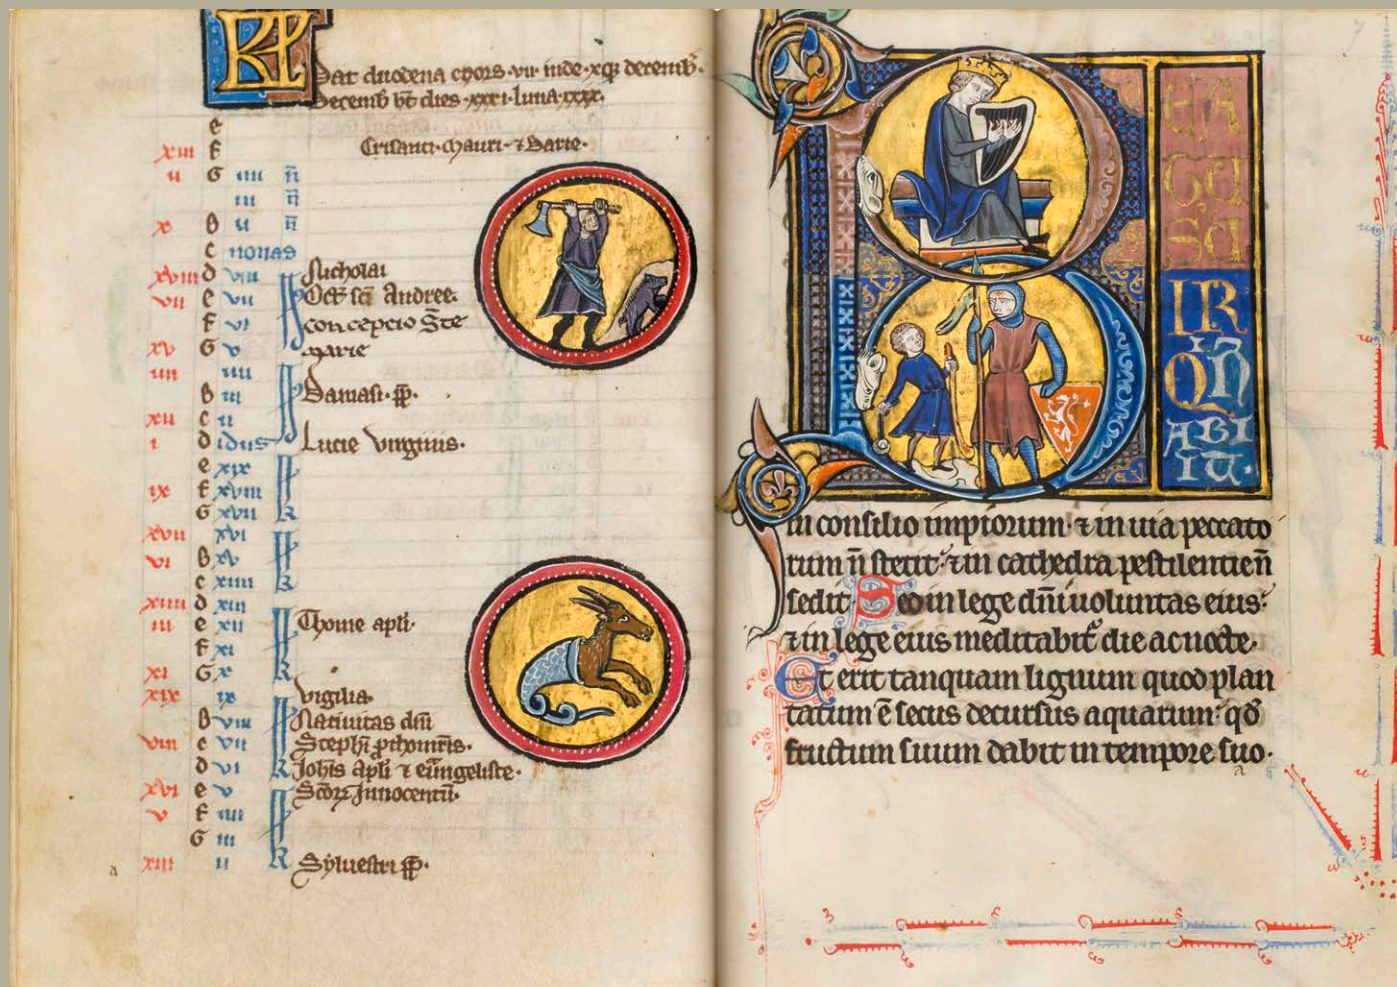 KL Dat duodena cohors vii inde xq; decemb̄.
Decemb h̄t dies xxxi luna xxx.
e
xiii f Crisanti mauri ⁊ Darie.
ii G iiii n̄
iii n̄
x b ii n̄
c nonas
xviii d viii Nicholai
vii e vii Oct̄ sc̄i Andree.
f vi concepcio Sc̄e
xv G v marie
iiii
b iii Damasi pp̄.
xii c ii
i d idus Lucie virginis.
e xix
ix f xviii
G xvii k
xvii xvi
vi b xv
c xiiii k
xiiii d xiii
iii e xii Thome apl̄i.
f xi
xi G x k
xix ix vigilia
b viii Natiuitas dn̄i
viii c vii Stephī p̄thomr̄is.
d vi k Joh̄is apl̄i ⁊ eūangeliste.
xvi e v Scōꝝ Innocentū.
v f iiii
G iii
xiii ii k Syluestri pp̄.
a
B
EA
TUS
UI
IR
Q̄I N̄
ABI
IT̄.
in consilio impiorum. ⁊ in uia peccato
rum n̄ stetit. ⁊ in cathedra pestilentie n̄
sedit. Sed in lege dn̄i uoluntas eius.
⁊ in lege eius meditabit᷑ die ac nocte.
Et erit tanquam lignum quod plan
tatum ē secus decursus aquarum. qd̄
fructum suum dabit in tempore suo.
a
7